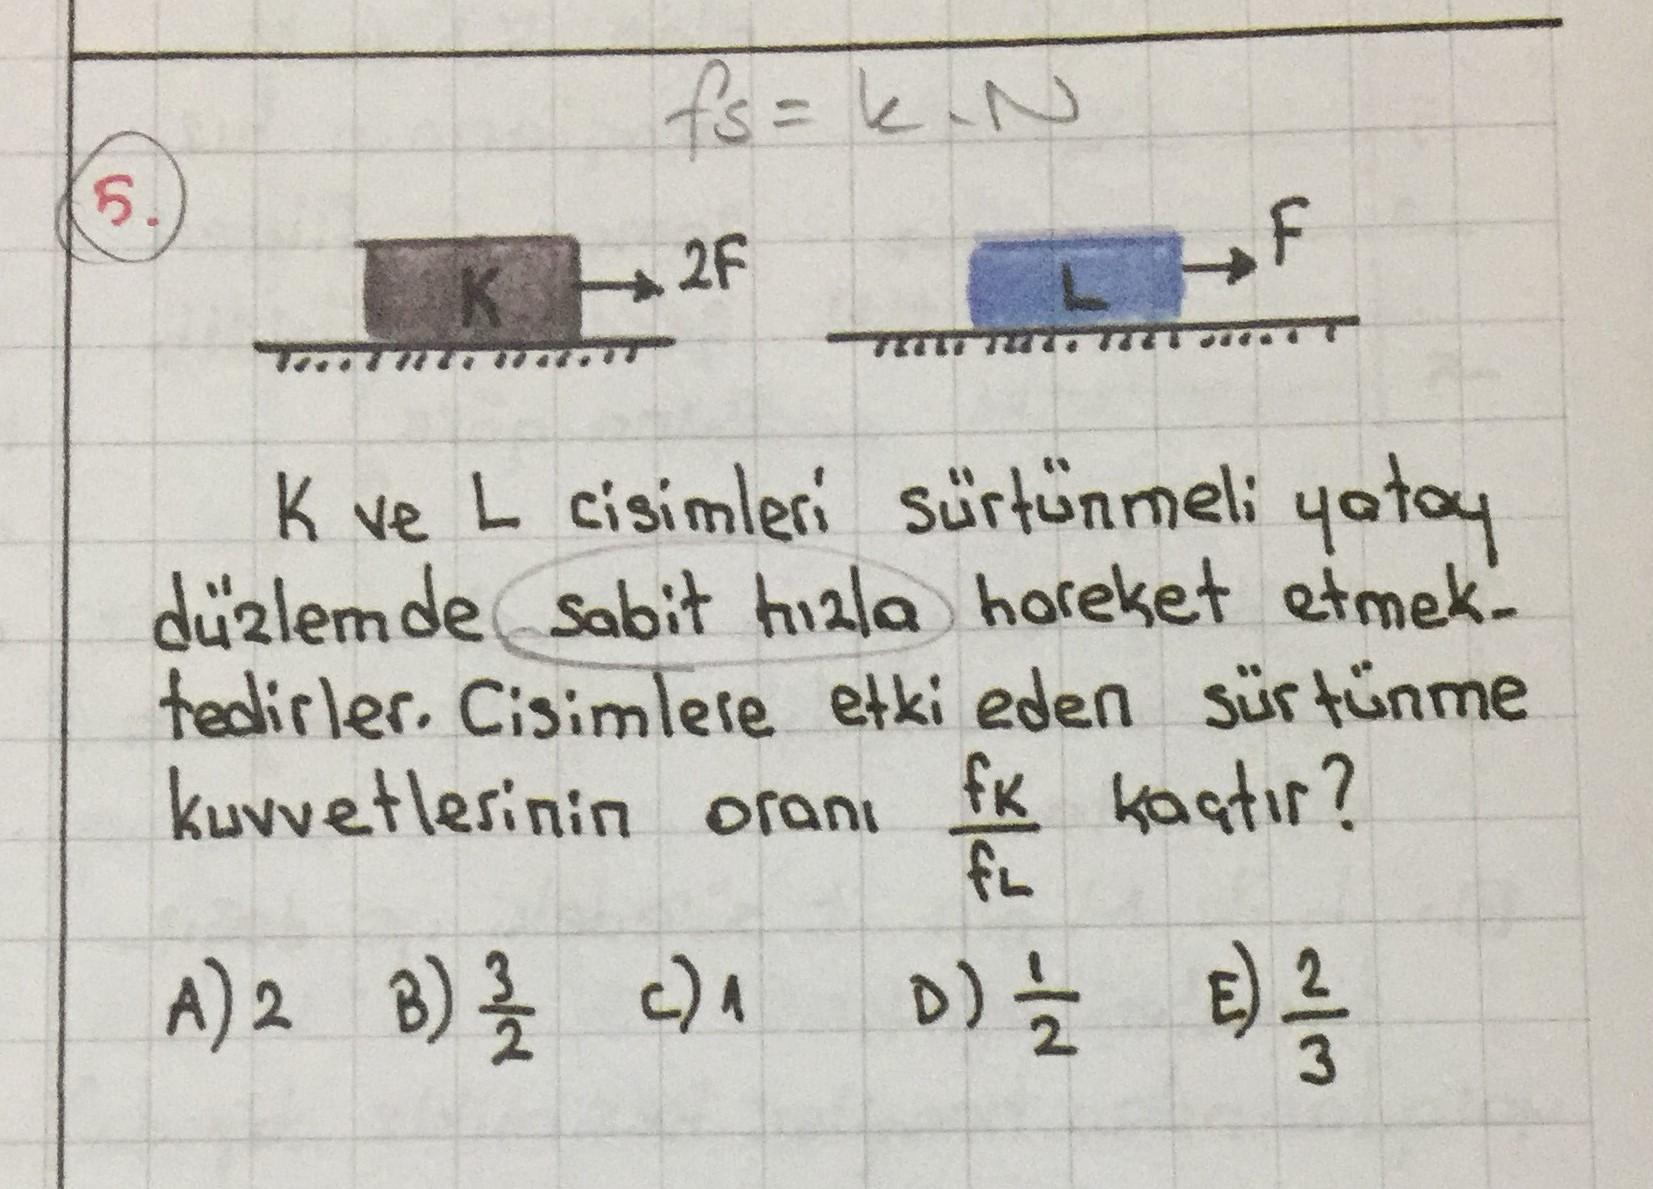 fs = k . N
5.
K 2F L F
K ve L cisimleri sürtünmeli yatay
düzlemde sabit hızla hareket etmek-
tedirler. Cisimlere etki eden sürtünme
kuvvetlerinin oranı fK/fL kaçtır?
A) 2 B) 3/2 C) 1 D) 1/2 E) 2/3